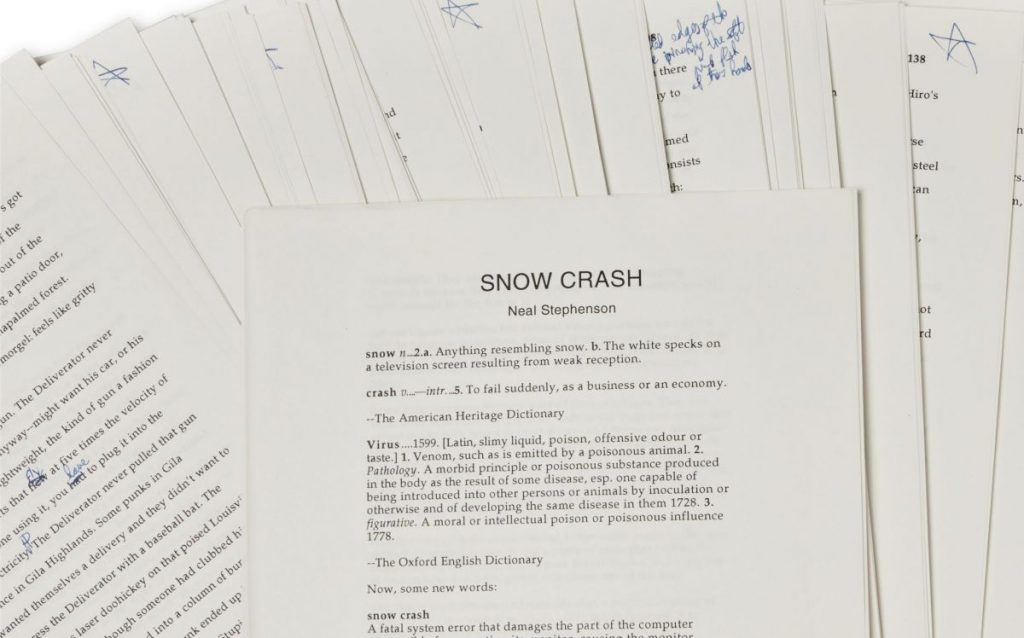 SNOW CRASH
Neal Stephenson
snow n...2.a. Anything resembling snow. b. The white specks on
a television screen resulting from weak reception.
crash v....—intr...5. To fail suddenly, as a business or an economy.
--The American Heritage Dictionary
Virus....1599. [Latin, slimy liquid, poison, offensive odour or
taste.] 1. Venom, such as is emitted by a poisonous animal. 2.
Pathology. A morbid principle or poisonous substance produced
in the body as the result of some disease, esp. one capable of
being introduced into other persons or animals by inoculation or
otherwise and of developing the same disease in them 1728. 3.
figurative. A moral or intellectual poison or poisonous influence
1778.
--The Oxford English Dictionary
Now, some new words:
snow crash
A fatal system error that damages the part of the computer
s got
of the
out of the
g a patio door,
napalmed forest.
morgel: feels like gritty
un. The Deliverator never
nyway--might want his car, or his
ghtweight, the kind of gun a fashion
ts that at five times the velocity of
ne using it, you have to plug it into the
ctricity. The Deliverator never pulled that gun
nce in Gila Highlands. Some punks in Gila
wanted themselves a delivery and they didn't want to
ess the Deliverator with a baseball bat. The
s laser doohickey on that poised Louisv
hough someone had clubbed h
d into a column of bur
nk ended up
Stup
nd
t
edges of the
the soft
flesh
of his hands
there
y to
med
nsists
h:
138
Hiro's
se
steel
an
ot
rd
s.
n,